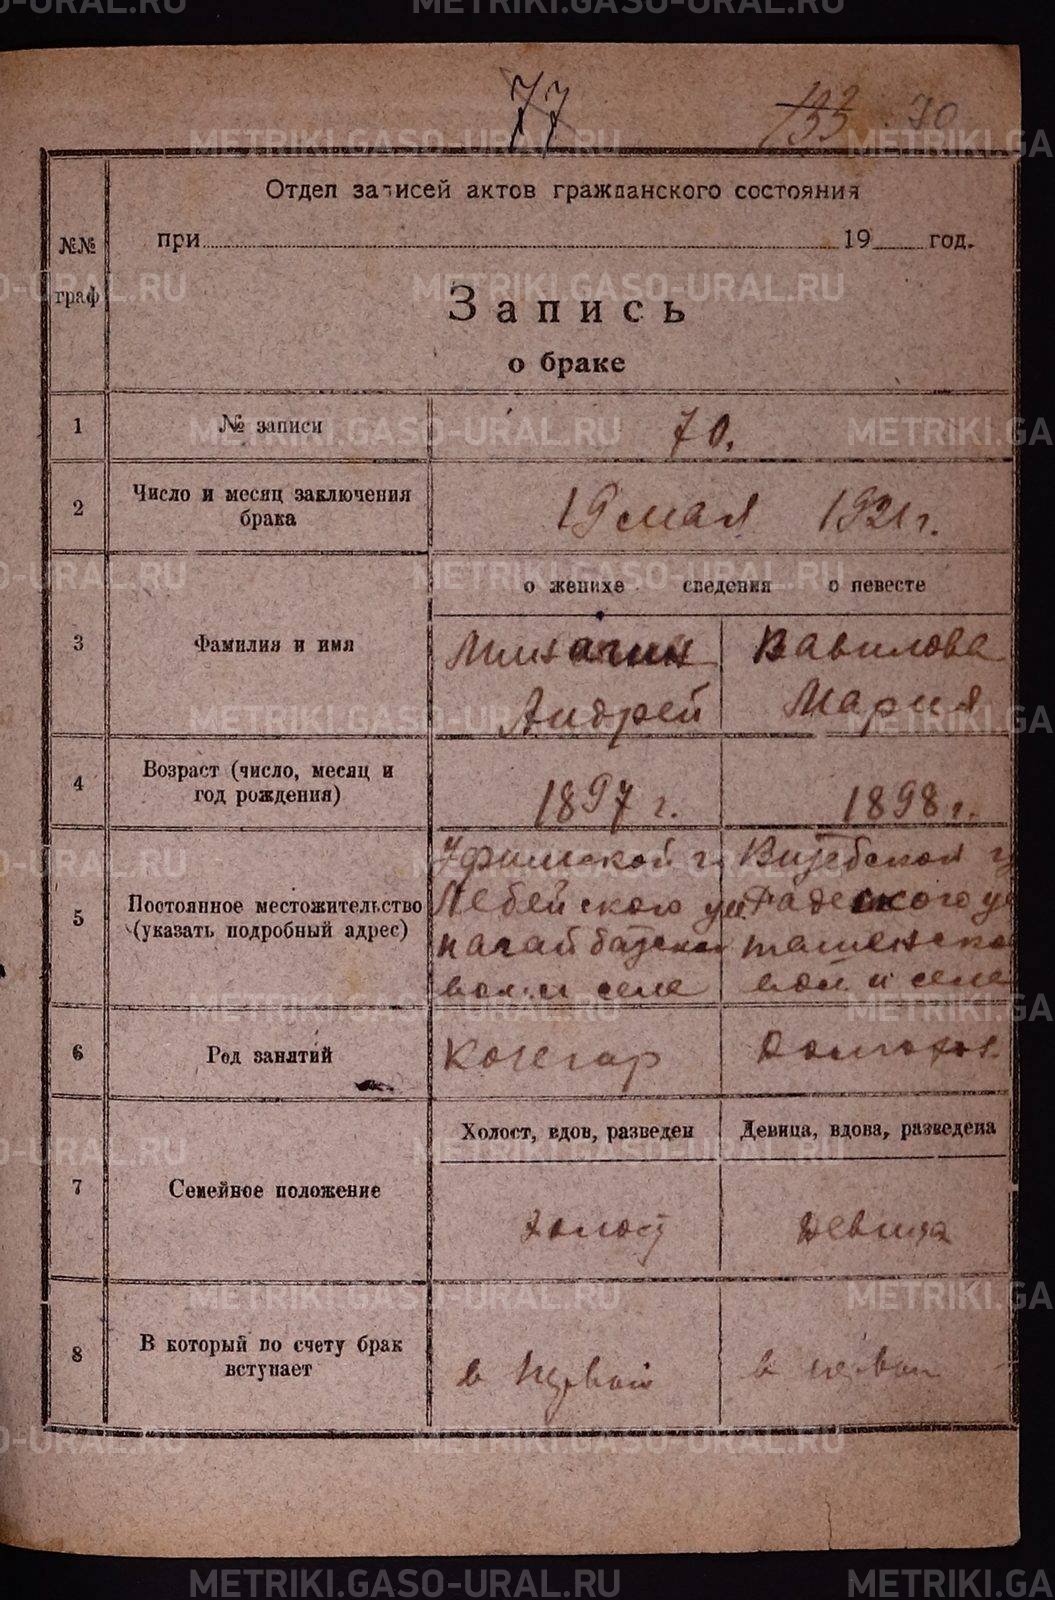 77
133 70
Отдел записей актов гражданского состояния
при 19 год.
№№ граф
Запись
о браке
1 № записи 70.
2 Число и месяц заключения брака 19 мая 1921 г.
о женихе сведения о невесте
3 Фамилия и имя
Вавилова
Андрей Мария
4 Возраст (число, месяц и год рождения) 1897 г. 1898 г.
5 Постоянное местожительство (указать подробный адрес)
Уфимской г. Витебской г
Лебейского уи
нагайбатской
вол. и селе вол и селе
6 Род занятий Кочегар
Холост, вдов, разведен Девица, вдова, разведена
7 Семейное положение холост девица
8 В который по счету брак вступает в первый в первый
METRIKI.GASO-URAL.RU